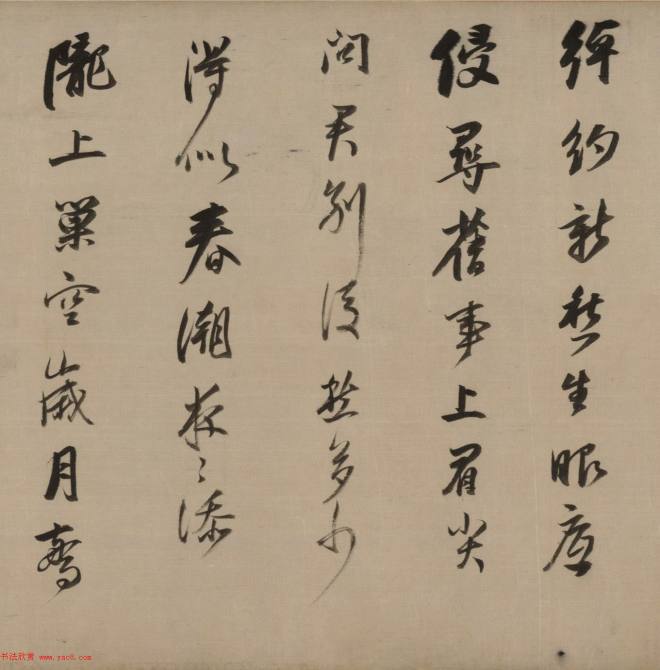 綽約新愁生眼底
侵尋舊事上眉尖
問君別後愁多少
得似春潮夜〻添
隴上巢空歲月驚
书法欣赏 www.yac8.com